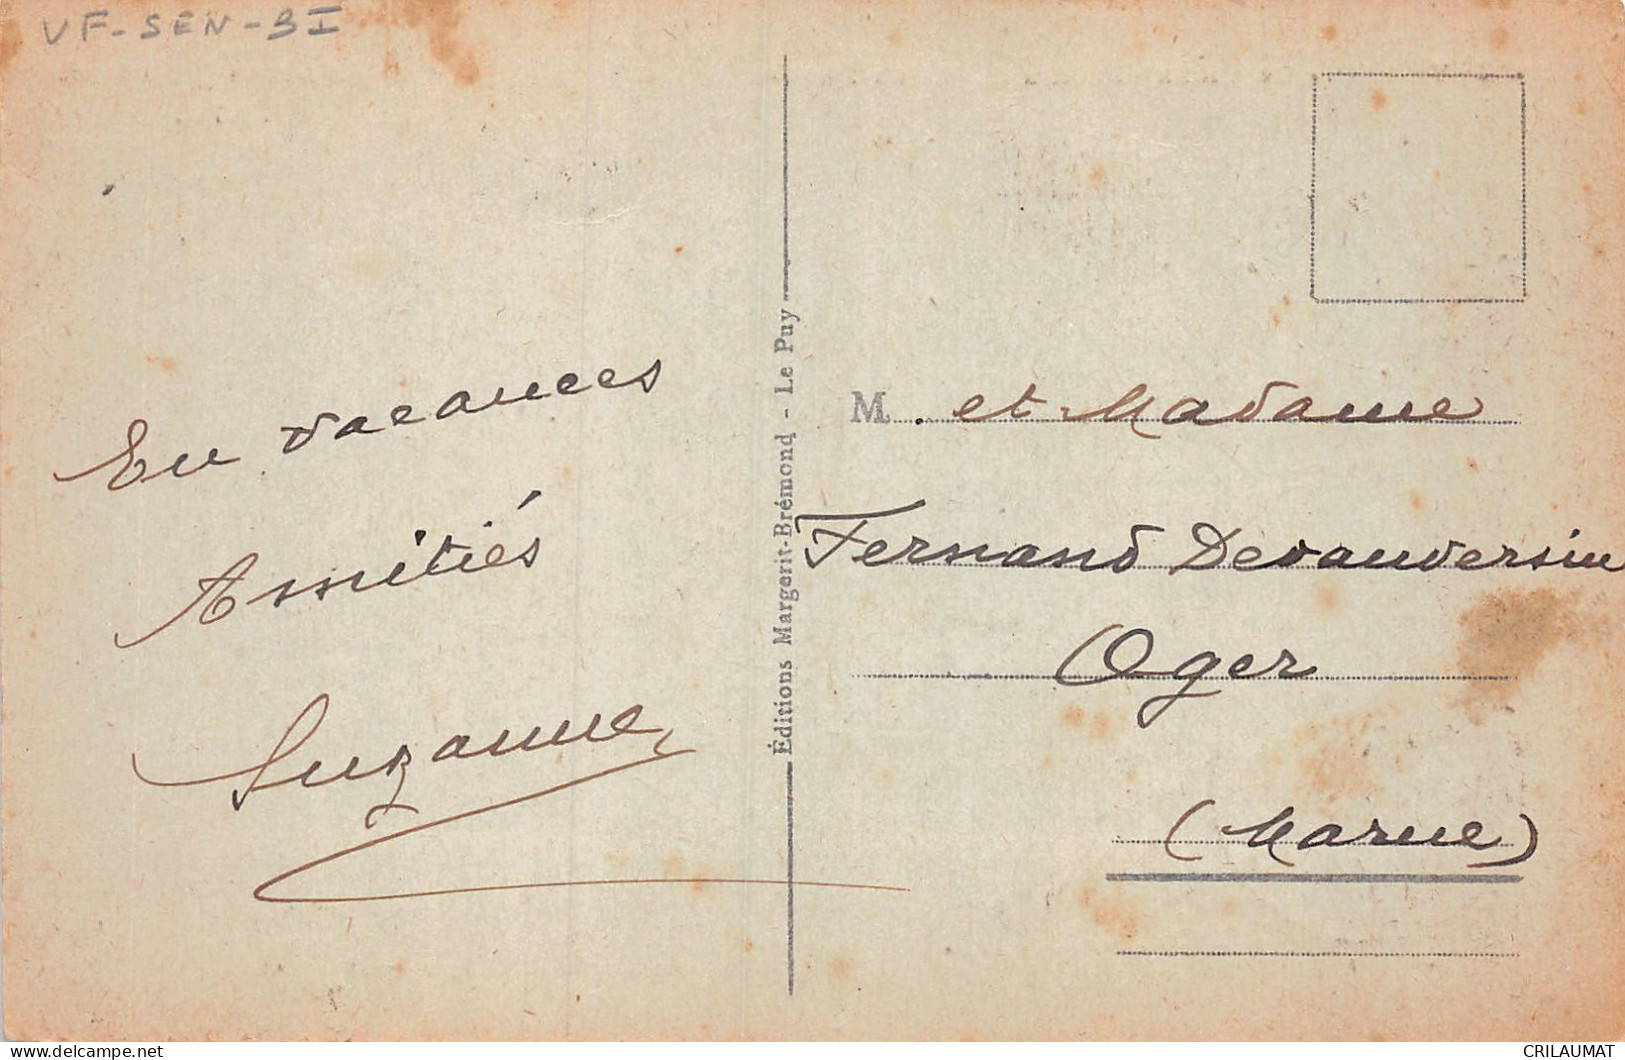 VF-SEN-3I
En vacances
Amitiés
Suzanne
Éditions Margerit-Brémond - Le Puy
M. et Madame
Fernand Devauversin
Oger
(Marne)
delcampe.net
CRILAUMAT